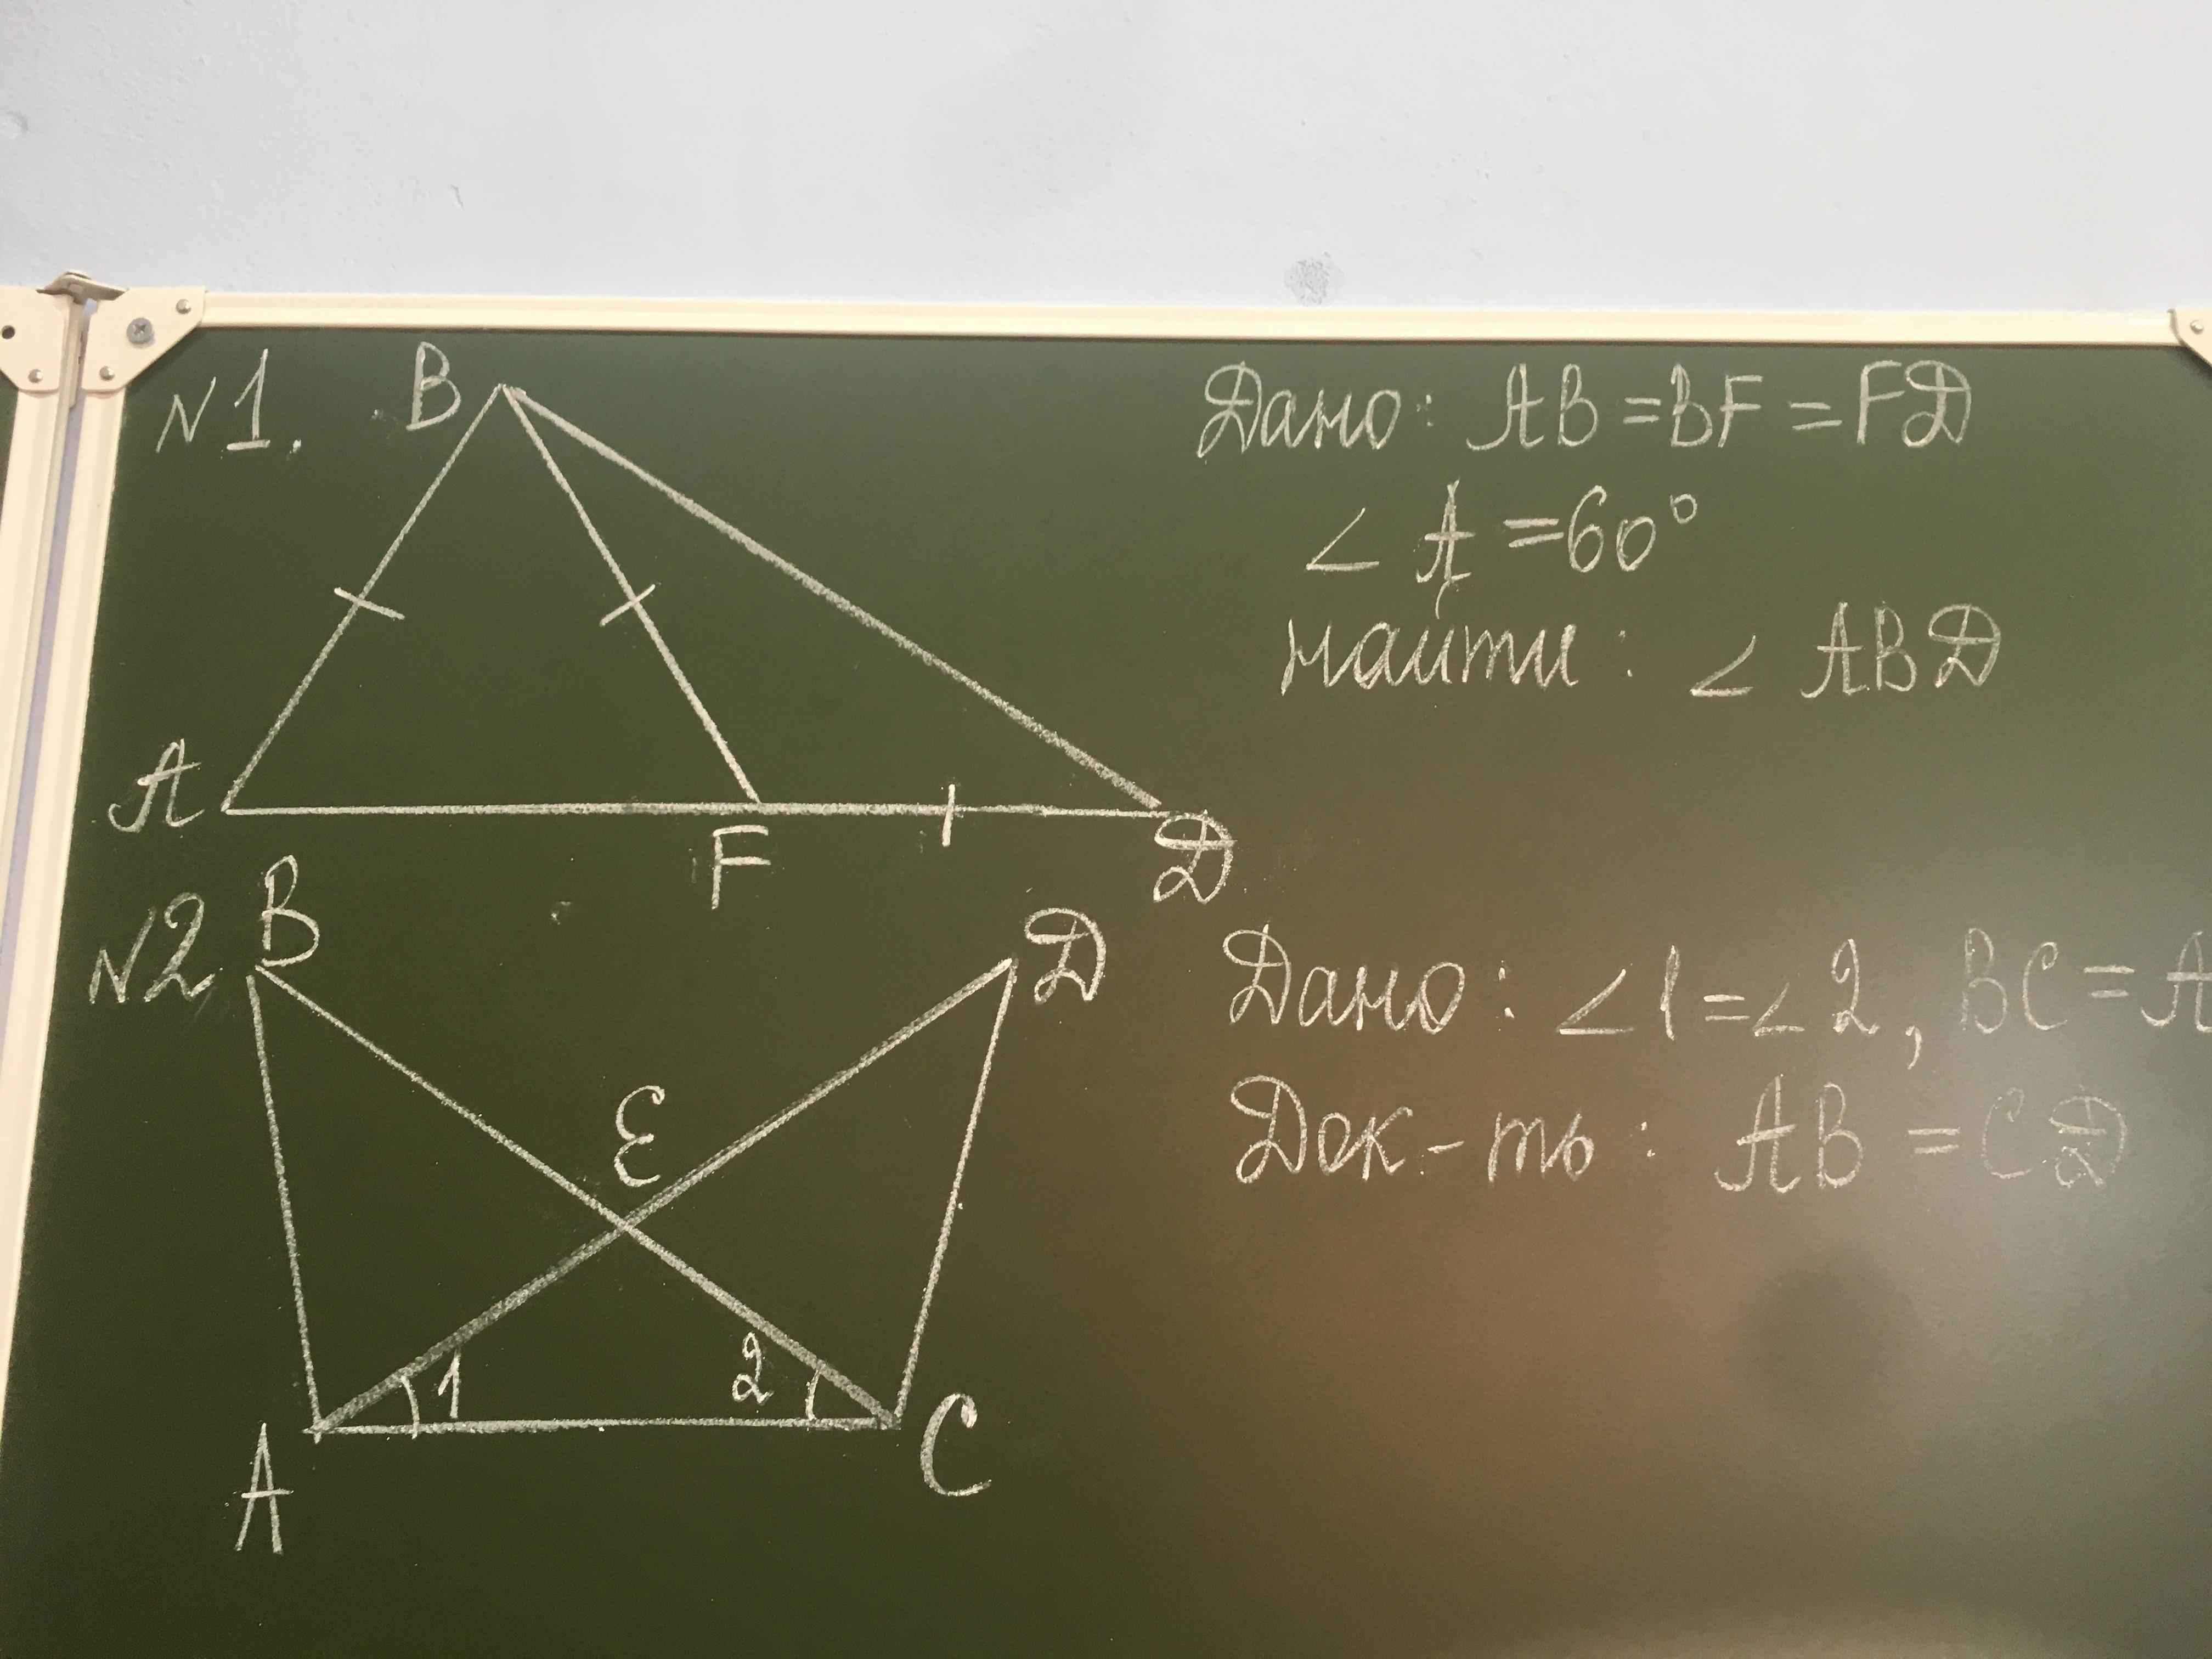 N1.
B
A
F
D
Дано: AB = BF = FD
∠ A = 60°
найти: ∠ ABD
N2
B
D
E
1
2
A
C
Дано: ∠1 = ∠2, BC = A
Док-ть: AB = CD